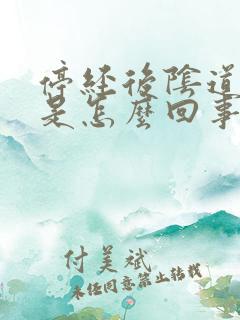 停经後陰道
是怎麼回事
付美斌
未经同意禁止转载